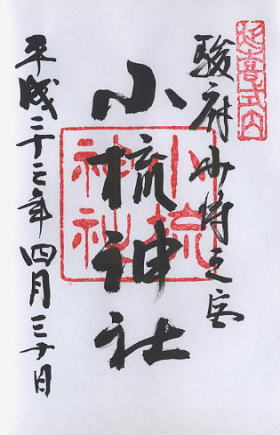 延喜式内
駿府少将之宮
小梳神社
小梳神社
平成二十三年四月三十日